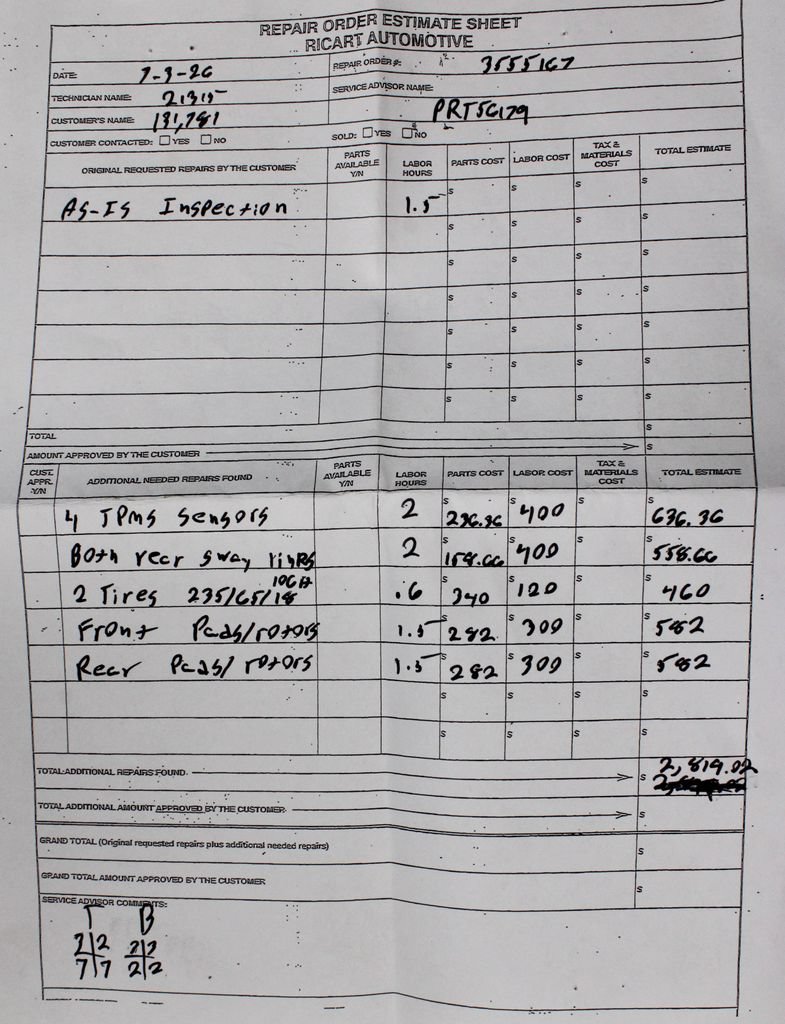 REPAIR ORDER ESTIMATE SHEET
RICART AUTOMOTIVE
DATE: 7-3-26 REPAIR ORDER #: 3555167
TECHNICIAN NAME: 21315 SERVICE ADVISOR NAME:
CUSTOMER'S NAME: 181,781 PRTSG179
CUSTOMER CONTACTED: ☐ YES ☐ NO SOLD: ☐ YES ☐ NO
ORIGINAL REQUESTED REPAIRS BY THE CUSTOMER PARTS AVAILABLE Y/N LABOR HOURS PARTS COST LABOR COST TAX & MATERIALS COST TOTAL ESTIMATE
AS-IS Inspection 1.5 $ $ $ $
$ $ $ $
$ $ $ $
$ $ $ $
$ $ $ $
$ $ $ $
$ $ $ $
TOTAL $
AMOUNT APPROVED BY THE CUSTOMER $
CUST. APPR. Y/N ADDITIONAL NEEDED REPAIRS FOUND PARTS AVAILABLE Y/N LABOR HOURS PARTS COST LABOR COST TAX & MATERIALS COST TOTAL ESTIMATE
4 TPMS Sensors 2 $ 236.36 $ 400 $ $ 636.36
Both rear sway links 2 $ 158.66 $ 400 $ $ 558.66
2 Tires 235/65/18 106H .6 $ 340 $ 120 $ $ 460
Front Pads/rotors 1.5 $ 282 $ 300 $ $ 582
Rear Pads/rotors 1.5 $ 282 $ 300 $ $ 582
$ $ $ $
$ $ $ $
TOTAL ADDITIONAL REPAIRS FOUND $ 2,819.02
TOTAL ADDITIONAL AMOUNT APPROVED BY THE CUSTOMER $
GRAND TOTAL (Original requested repairs plus additional needed repairs) $
GRAND TOTAL AMOUNT APPROVED BY THE CUSTOMER $
SERVICE ADVISOR COMMENTS:
T B
2 2 2 2
7 7 2 2